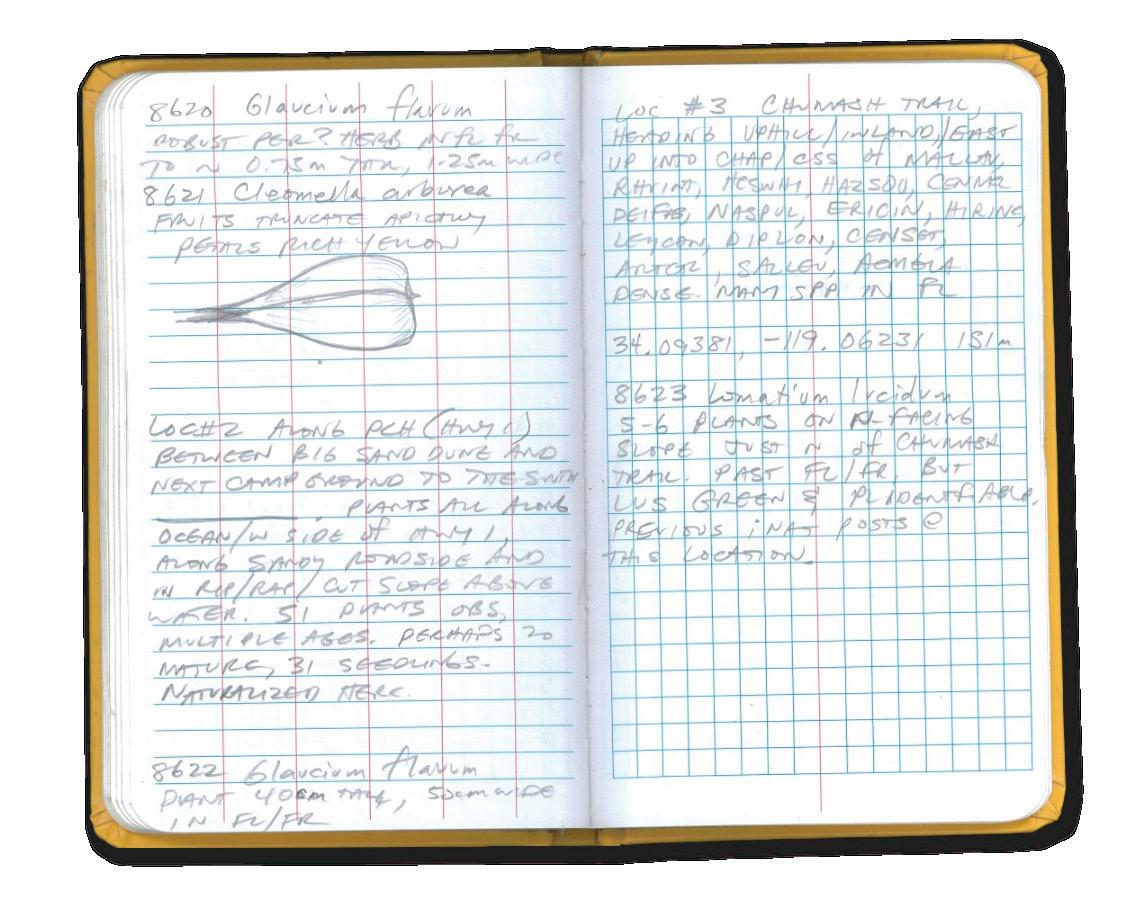 8620 Glaucium flavum
ROBUST PER? HERB IN FL FR
TO ~ 0.75m TALL, 1.25m WIDE
8621 Cleomella arborea
FRUITS TRUNCATE APICALLY
PETALS RICH YELLOW
LOC#2 ALONG PCH (HWY 1)
BETWEEN BIG SAND DUNE AND
NEXT CAMPGROUND TO THE SOUTH
. PLANTS ALL ALONG
OCEAN/W SIDE OF HWY 1,
ALONG SANDY ROADSIDE AND
IN RIP/RAP/CUT SLOPE ABOVE
WATER. 51 PLANTS OBS,
MULTIPLE AGES. PERHAPS 20
MATURE, 31 SEEDLINGS.
NATURALIZED HERE.
8622 Glaucium flavum
PLANT 40cm TALL, 50cm WIDE
IN FL/FR
LOC #3 CHUMASH TRAIL,
HEADING UPHILL/INLAND/EAST
UP INTO CHAP/CSS of MALLAU,
RHUINT, HESWHI, HAZSQU, CENMEL
NASPUL, ERICIN, HIRINC,
LEYCON, DIPLON, CENSET,
ARTCAL, SALLEU, ACMGLA
DENSE. MANY SPP IN FL
34.09381, -119.06231 131m
8623 Lomatium lucidum
5-6 PLANTS ON N-FACING
SLOPE JUST N of CHUMASH
TRAIL. PAST FL/FR BUT
LVS GREEN & PL IDENTIFIABLE.
PREVIOUS iNAT POSTS @
THIS LOCATION.